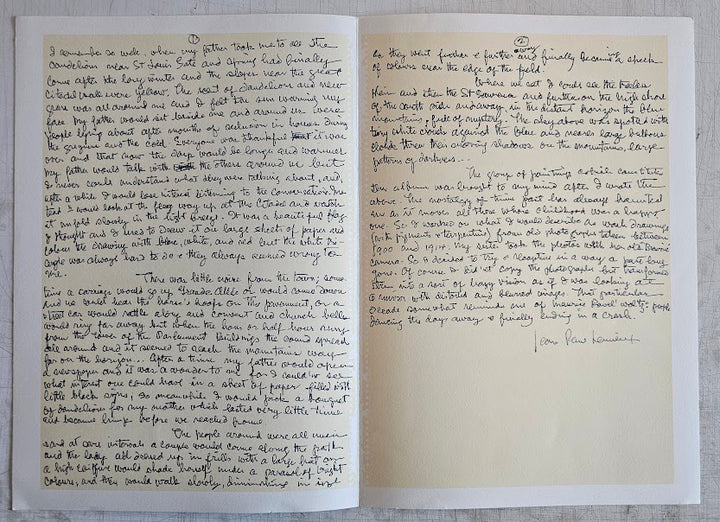 1
I remember so well, when my father took me to see the
dandelions near St Louis Gate and spring had finally
come after the long winter and the slopes near the great
Citadel walls were yellow. The scent of dandelions and new
grass was all around me and I felt the sun warming my
face. My father would sit beside me and around us were
people lying about after months of seclusion in houses during
the and the cold. Everyone was thankful that it was
over and that now the days would be longer and warmer
My father would talk with the others around us but
I never could understand what they were talking about, and,
after a while I would lose interest listening to the conversation. Ins
tead I would look at the flag way up at the Citadel and watch
it unfold slowly in the light breeze. It was a beautiful flag
I thought and I tried to draw it on large sheets of paper and
colour the drawing with blue, white, and red but the white
was always hard to do & they always seemed wrong to
me.
There was little noise from the town; some
time a carriage would go up Grande Allée or would come down
and we could hear the horse's hoofs on the pavement, or a
street car would rattle along and convent and church bells
would ring far away but when the hour or half hour rang
from the tower of the Parliament Buildings the sound spread
all around and it seemed to reach the mountains way
far on the horizon... After a time my father would open
a newspaper and it was a wonder to me for I couldn't see
what interest one could have in a sheet of paper filled with
little black signs, so meanwhile I would pick a bouquet
of dandelions for my mother which lasted very little time
and became limp before we reached home
The people around were all
and at rare intervals a couple would come along the path
and the lady all dressed up in frills with a large hat on
a high coiffure would shade herself under a parasol of bright
colours, and they would walk slowly, diminishing in size
2
as they went further & further away and finally becoming specks
of colours near the edge of the field.
Where we sat I could see the
Plain and then the St Lawrence and further on the high shore
of the south side and away in the distant horizon the blue
mountains, full of mystery. The sky above was spotted with
tiny white clouds against the blue and nearer large balloons
clouds threw their coloring shadows on the mountains, large
patterns of darkness...
The group of paintings which constitute
this album was brought to my mind after I wrote the
above. The nostalgy of time past has always haunted
me as it moves all those whose childhood was a happy
one. So I worked on what I would describe as wash drawings
(with pigments & turpentine) from old photographs taken between
1900 and 1914. My sister took the photos with her old Brownie
camera. So I decided to try & recapture in a way a past long
gone. Of course I didn't copy the photograph but transformed
them into a sort of hazy vision as if I was looking at
a mirror with distorted and blurred images. That particular
decade somewhat reminds me of Maurice Ravel's waltz: people
dancing the days away & finally ending in a crash.
Jean Paul Lemieux